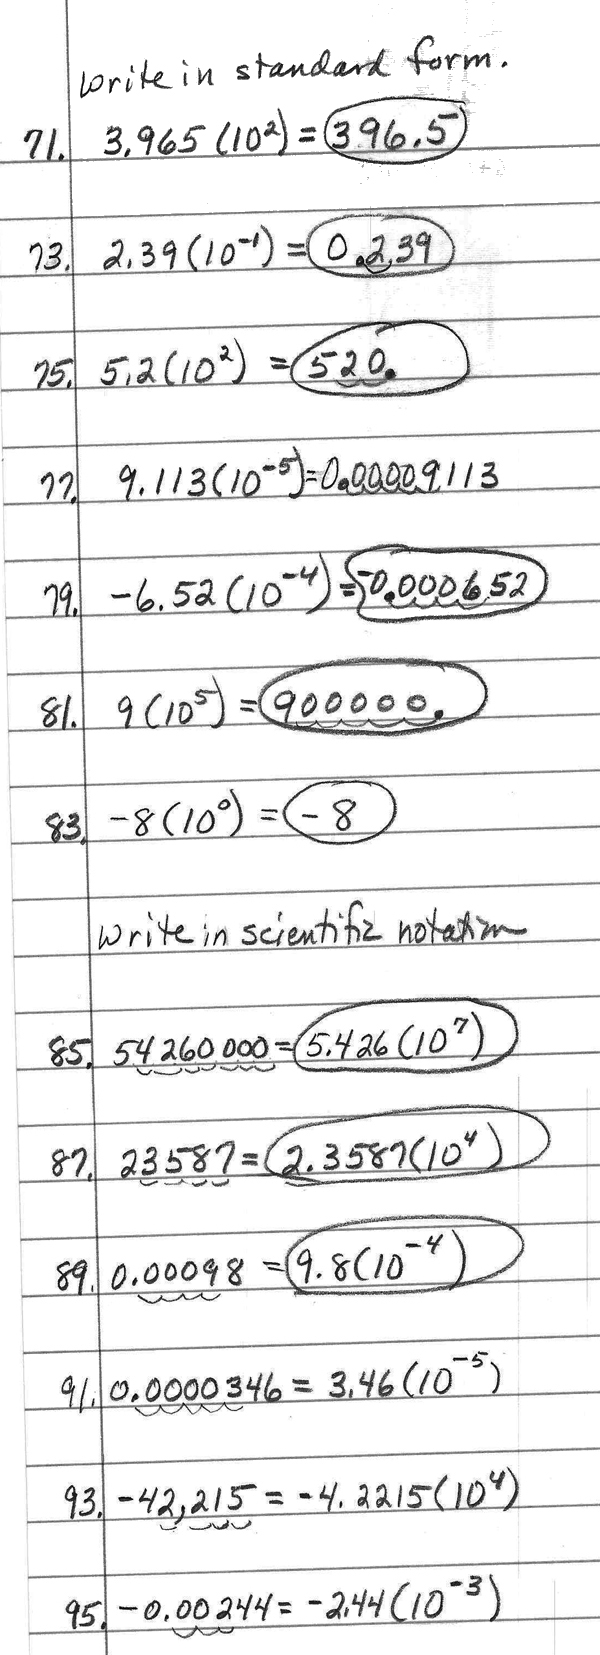 Write in standard form.
71. 3.965 (10²) = 396.5
73. 2.39 (10⁻¹) = 0.239
75. 5.2 (10²) = 520.
77. 9.113 (10⁻⁵) = 0.00009113
79. -6.52 (10⁻⁴) = -0.000652
81. 9 (10⁵) = 900000.
83. -8 (10⁰) = -8
Write in scientific notation
85. 54260000 = 5.426 (10⁷)
87. 23587 = 2.3587 (10⁴)
89. 0.00098 = 9.8 (10⁻⁴)
91. 0.0000346 = 3.46 (10⁻⁵)
93. -42,215 = -4.2215 (10⁴)
95. -0.00244 = -2.44 (10⁻³)